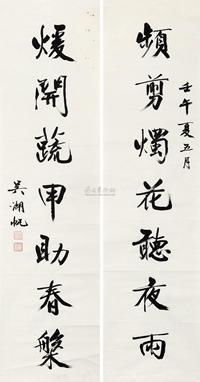 壬午夏五月
頻剪燭花聽夜雨
煖開蔬甲助春槃
吴湖帆